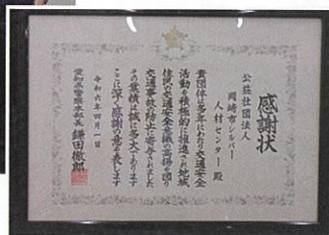 感謝状
公益社団法人
岡崎市シルバー
人材センター殿
貴団体は多年にわたり交通安全
活動を積極的に推進され地域
住民の交通安全意識の高揚を図り
交通事故の防止に寄与されました
その業績は誠に多大であります
ここに深く感謝の意を表します
令和六年四月一日
愛知県警察本部長 鎌田徹郎